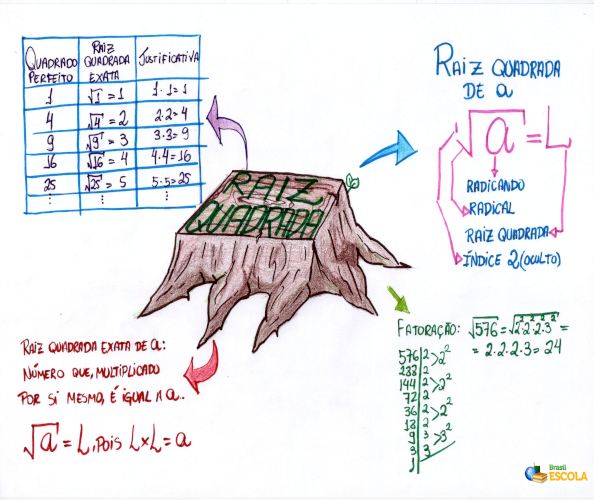 QUADRADO PERFEITO | RAIZ QUADRADA EXATA | JUSTIFICATIVA
1 | √1 = 1 | 1·1=1
4 | √4 = 2 | 2·2=4
9 | √9 = 3 | 3·3=9
16 | √16 = 4 | 4·4=16
25 | √25 = 5 | 5·5=25
⋮ | ⋮ | ⋮
RAIZ QUADRADA
DE a
√a = L
RADICANDO
RADICAL
RAIZ QUADRADA
ÍNDICE 2 (OCULTO)
RAIZ
QUADRADA
RAIZ QUADRADA EXATA DE a:
NÚMERO QUE, MULTIPLICADO
POR SI MESMO, É IGUAL A a..
√a = L, POIS L×L = a
FATORAÇÃO: √576 = √2²·2²·2²·3² =
= 2·2·2·3 = 24
576 | 2 > 2²
288 | 2
144 | 2 > 2²
72 | 2
36 | 2 > 2²
18 | 2
9 | 3 > 3²
3 | 3
1
Brasil
ESCOLA